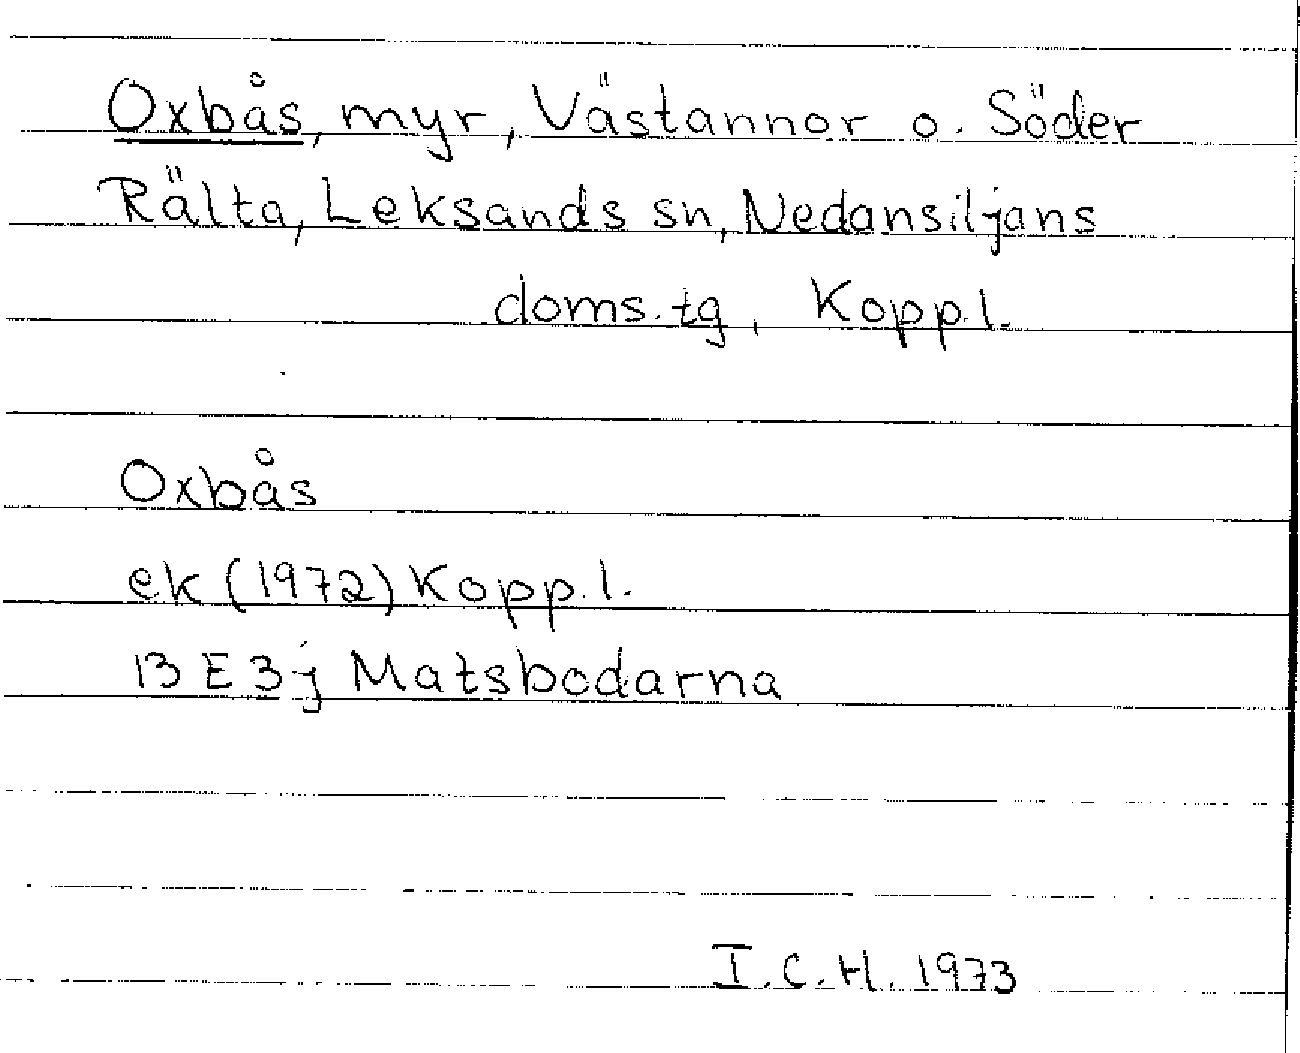 Oxbås, myr, Västannor o. Söder
Rälta, Leksands sn, Nedansiljans
doms.tg, Kopp.l.
Oxbås
ek (1972) Kopp.l.
13 E 3 j Matsbodarna
I.C.H. 1973